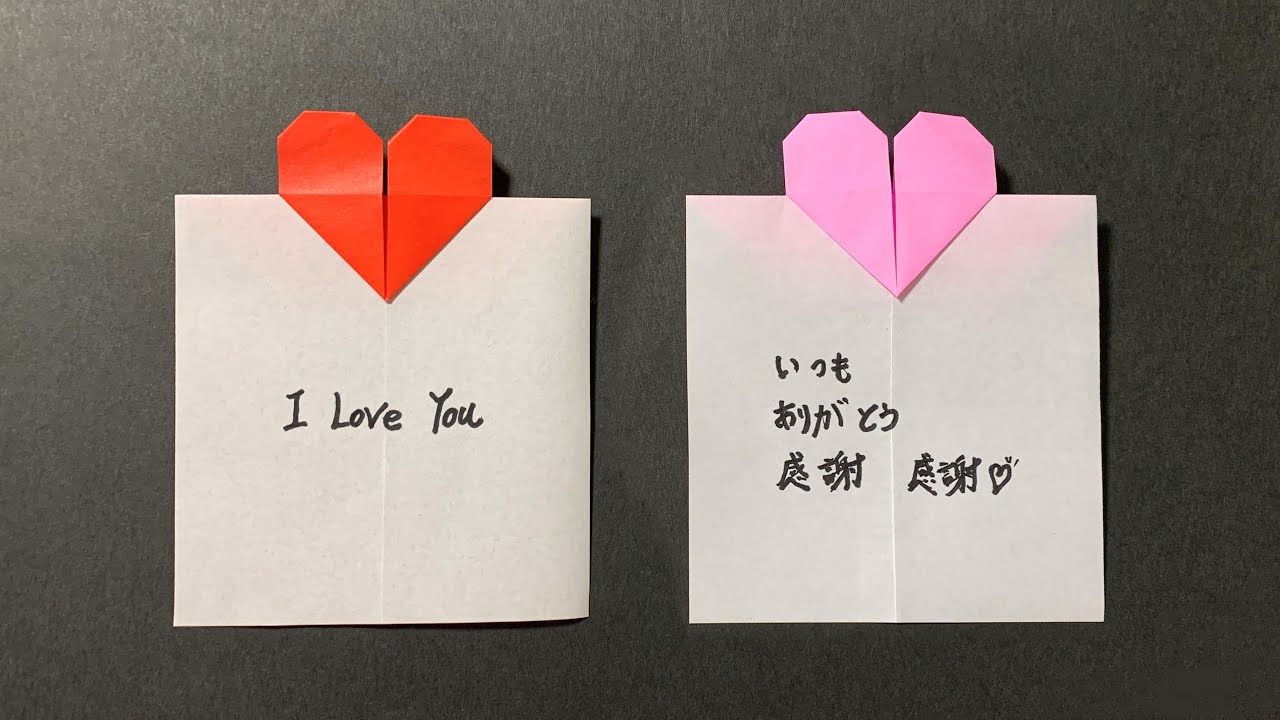 I Love You
いつも
ありがとう
感謝 感謝♡